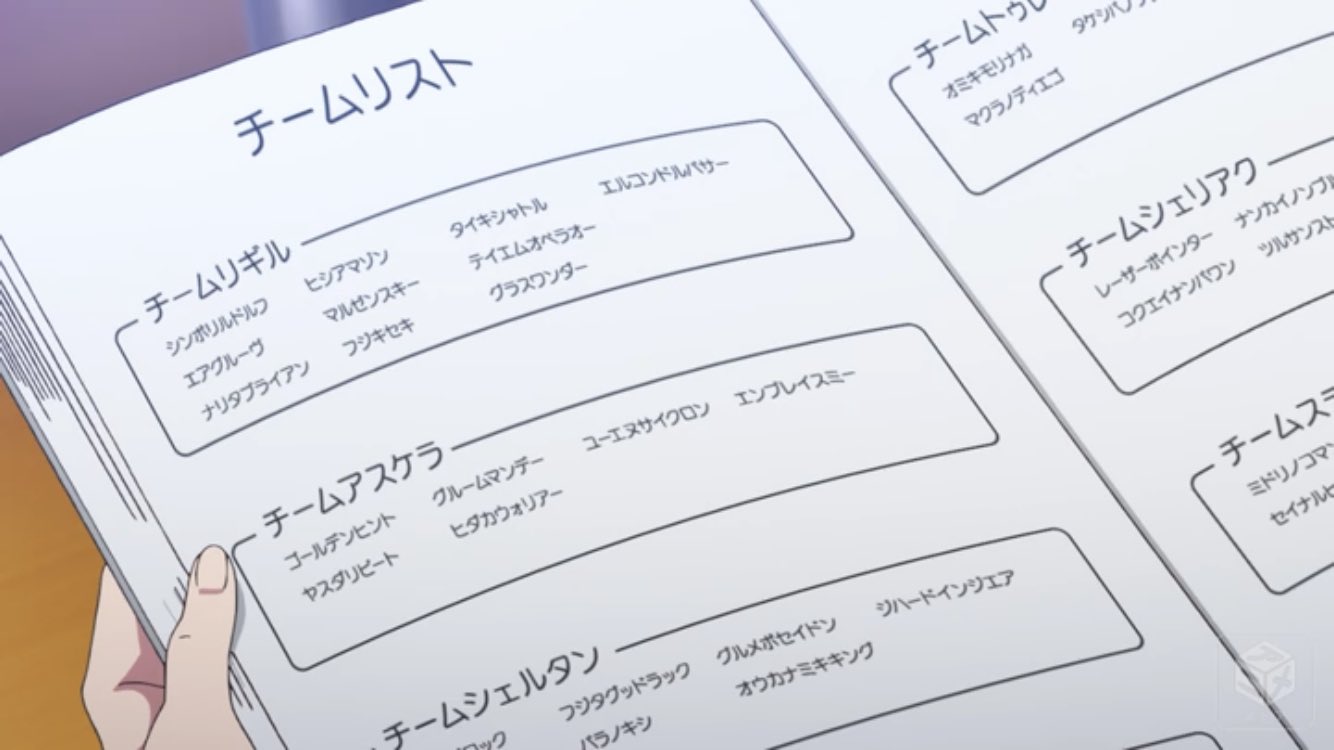 チームリスト
チームリギル
シンボリルドルフ ヒシアマゾン タイキシャトル エルコンドルパサー
エアグルーヴ マルゼンスキー テイエムオペラオー
ナリタブライアン フジキセキ グラスワンダー
チームアスケラ
ゴールデンヒント グルームマンデー ユーエヌサイクロン エンブレイスミー
ヤスダリピート ヒダカウォリアー
チームシェルタン
ロック フジタグッドラック グルメポセイドン ジハードインジエア
パラノキシ オウカナミキキング
チームトゥレ
オミキモリナガ タケシバノ
マクラノディエゴ
チームシェリアク
レーザーポインター ナンカイノンブル
コクエイナンバワン ツルサンスト
チームス
ミドリノコマン
セイナル